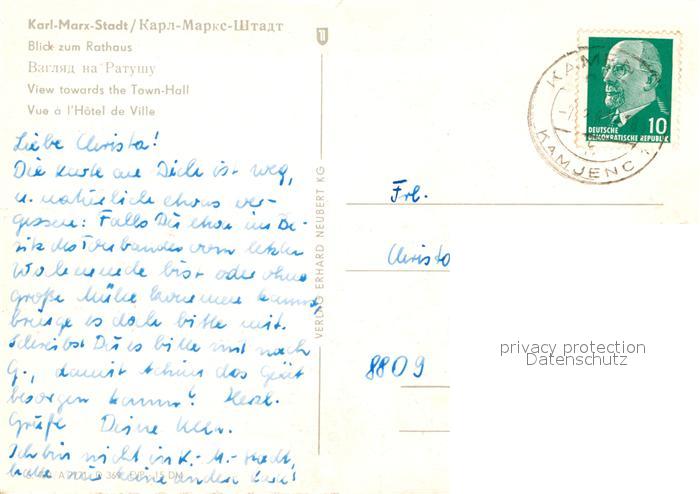 Karl-Marx-Stadt / Карл-Маркс-Штадт
Blick zum Rathaus
Взгляд на Ратушу
View towards the Town-Hall
Vue à l'Hôtel de Ville
Liebe Christa!
Die Karte an Dich ist weg,
u. natürlich etwas ver-
gessen: Falls Du etwa im Be-
sitz des Tonbandes vom letzten
Wochenende bist oder ohne
große Mühe kommen kannst,
bringe es doch bitte mit.
Schreibst Du es bitte mit nach
G., damit das
besorgen kann! Herzl.
Grüße Deine
Ich bin nicht in K.-M.-Stadt,
hatte nur keine andere Karte!
VERLAG ERHARD NEUBERT KG
KAMENZ
KAMJENC 1
DEUTSCHE
DEMOKRATISCHE REPUBLIK
10
Frl.
Christa
8809
privacy protection
Datenschutz